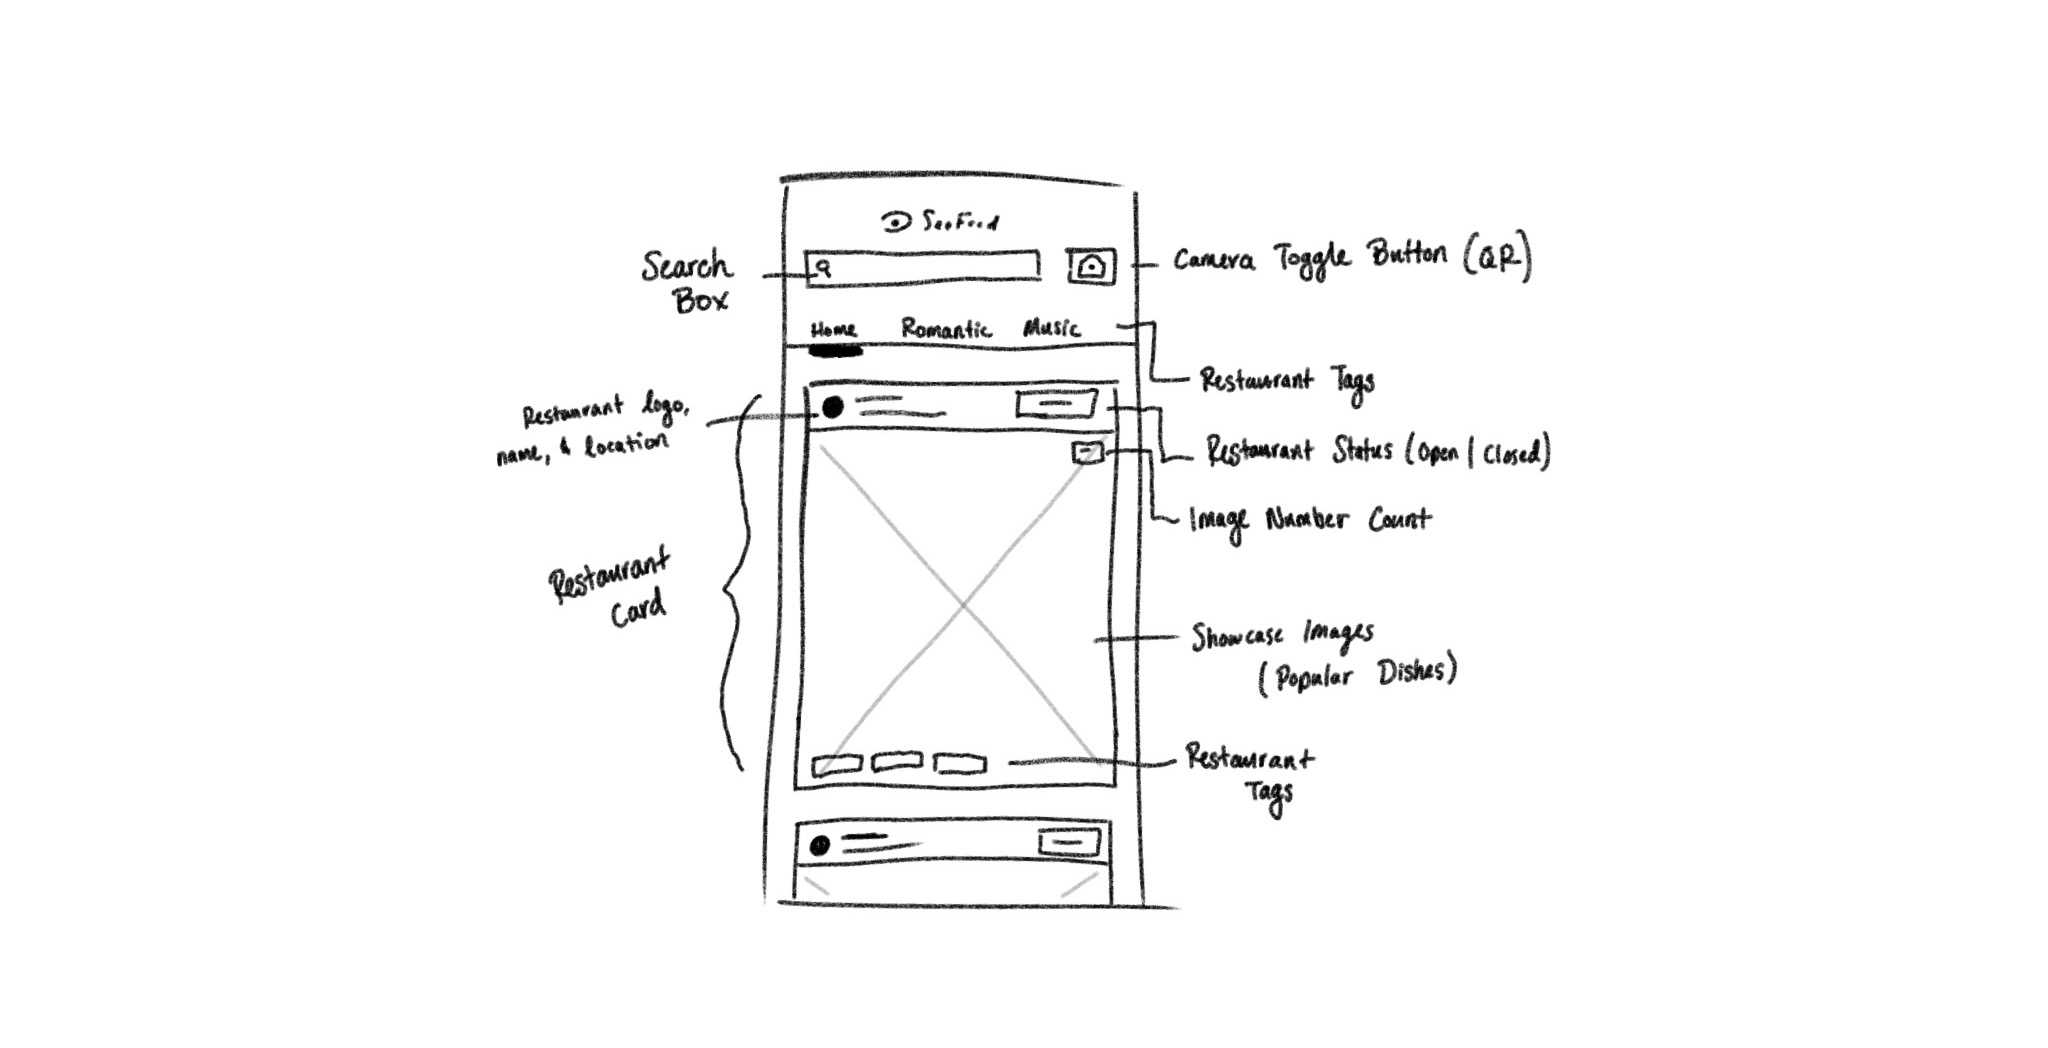 SeeFood
Search
Box
Camera Toggle Button (QR)
Home Romantic Music
Restaurant Tags
Restaurant logo,
name, & location
Restaurant Status (Open | Closed)
Image Number Count
Restaurant
Card
Showcase Images
(Popular Dishes)
Restaurant
Tags